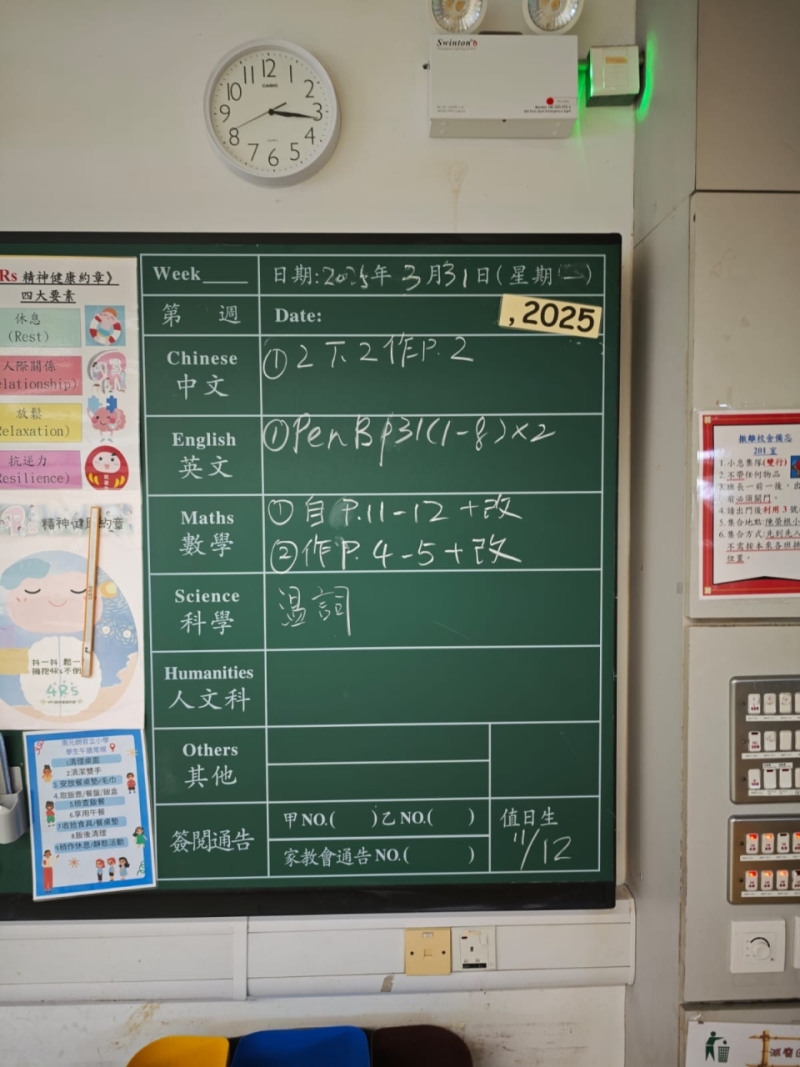 12
1
2
3
4
5
6
7
8
9
10
11
CASIO
Swinton's
Rs 精神健康約章》
四大要素
休息
(Rest)
人際關係
elationship)
放鬆
Relaxation)
抗逆力
Resilience)
精神健康約章
4Rs
Week____ 日期:2025年 3月31日(星期 )
第 週 Date:
, 2025
Chinese
中文
①2下.2作P.2
English
英文
①Pen B p31(1-8)×2
Maths
數學
①自P.11-12+改
②作P.4-5+改
Science
科學
溫詞
Humanities
人文科
Others
其他
簽閱通告
甲NO.( )乙NO.( )
家教會通告NO.( )
值日生
11/12
學生午膳常規
1清理桌面
2清潔雙手
3.安放餐桌墊/毛巾
4.取飯壺/餐盤/飯盒
5檢查飯餐
6.享用午餐
7收拾食具/餐桌墊
8飯後清理
9稍作休息/靜態活動
撤離校舍備忘
201室
1.小息集隊(雙行)
2.不帶任何物品
3.班長一前一後,
前必須關門。
4.請出門後利用3號
5.集合地點:陳榮根小
6.集合方式:先到先入
不需按本來各班排
位置。